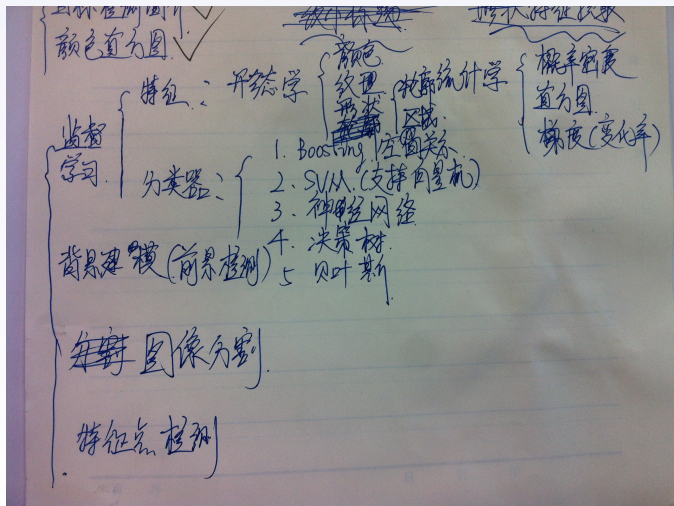 目标检测图片
颜色直方图
形状特征提取
监督
学习
特征:
形态学
颜色
纹理
形状
轮廓
区域
空间关系
统计学
概率密度
直方图
梯度(变化率)
分类器:
1. Boosting
2. SVM.(支持向量机)
3. 神经网络
4. 决策树.
5 贝叶斯
背景建模(前景检测)
图像分割.
特征点检测